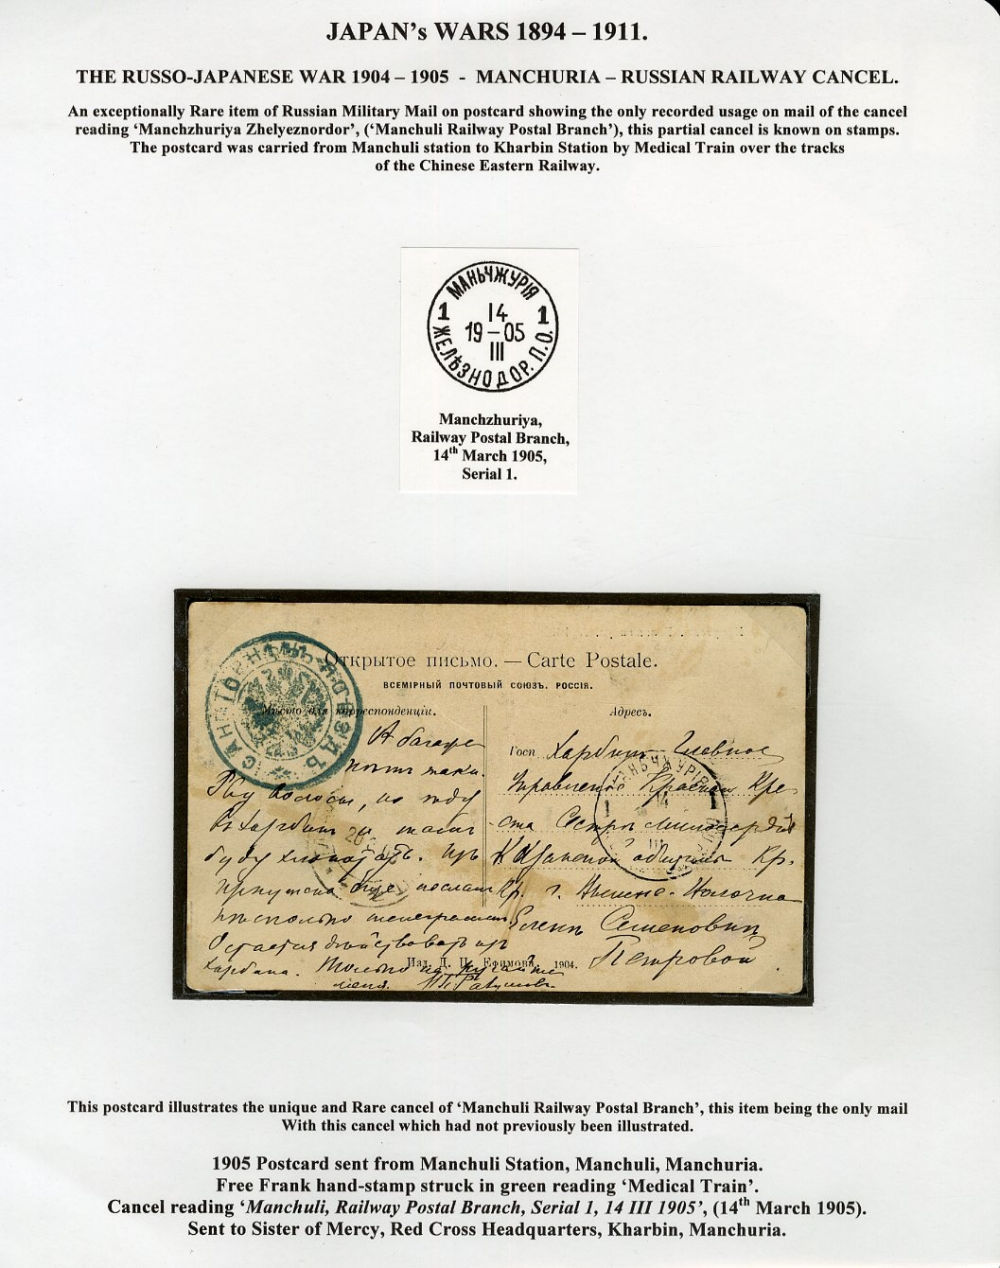 JAPAN's WARS 1894 – 1911.
THE RUSSO-JAPANESE WAR 1904 – 1905 - MANCHURIA – RUSSIAN RAILWAY CANCEL.
An exceptionally Rare item of Russian Military Mail on postcard showing the only recorded usage on mail of the cancel
reading ‘Manchzhuriya Zhelyeznordor’, (‘Manchuli Railway Postal Branch’), this partial cancel is known on stamps.
The postcard was carried from Manchuli station to Kharbin Station by Medical Train over the tracks
of the Chinese Eastern Railway.
МАНЬЧЖУРІЯ
1 14 1
19–05
III
ЖЕЛѢЗНОДОР. П.О.
Manchzhuriya,
Railway Postal Branch,
14th March 1905,
Serial 1.
Открытое письмо. — Carte Postale.
ВСЕМІРНЫЙ ПОЧТОВЫЙ СОЮЗЪ. РОССІЯ.
Мѣсто для корреспонденціи.
Адресъ.
Харбинъ Главное
Управленіе Красна Кре-
ста Сестрѣ милосердія
Казанской общины Кр.
Кр. г.
Еленѣ Семеновнѣ
Петровой
буду
Иркутска послалъ
нѣсколько телеграммъ
Харбина. Только не пугайте
меня.
Изд. Д. П. Ефимовъ, 1904.
This postcard illustrates the unique and Rare cancel of ‘Manchuli Railway Postal Branch’, this item being the only mail
With this cancel which had not previously been illustrated.
1905 Postcard sent from Manchuli Station, Manchuli, Manchuria.
Free Frank hand-stamp struck in green reading ‘Medical Train’.
Cancel reading ‘Manchuli, Railway Postal Branch, Serial 1, 14 III 1905’, (14th March 1905).
Sent to Sister of Mercy, Red Cross Headquarters, Kharbin, Manchuria.